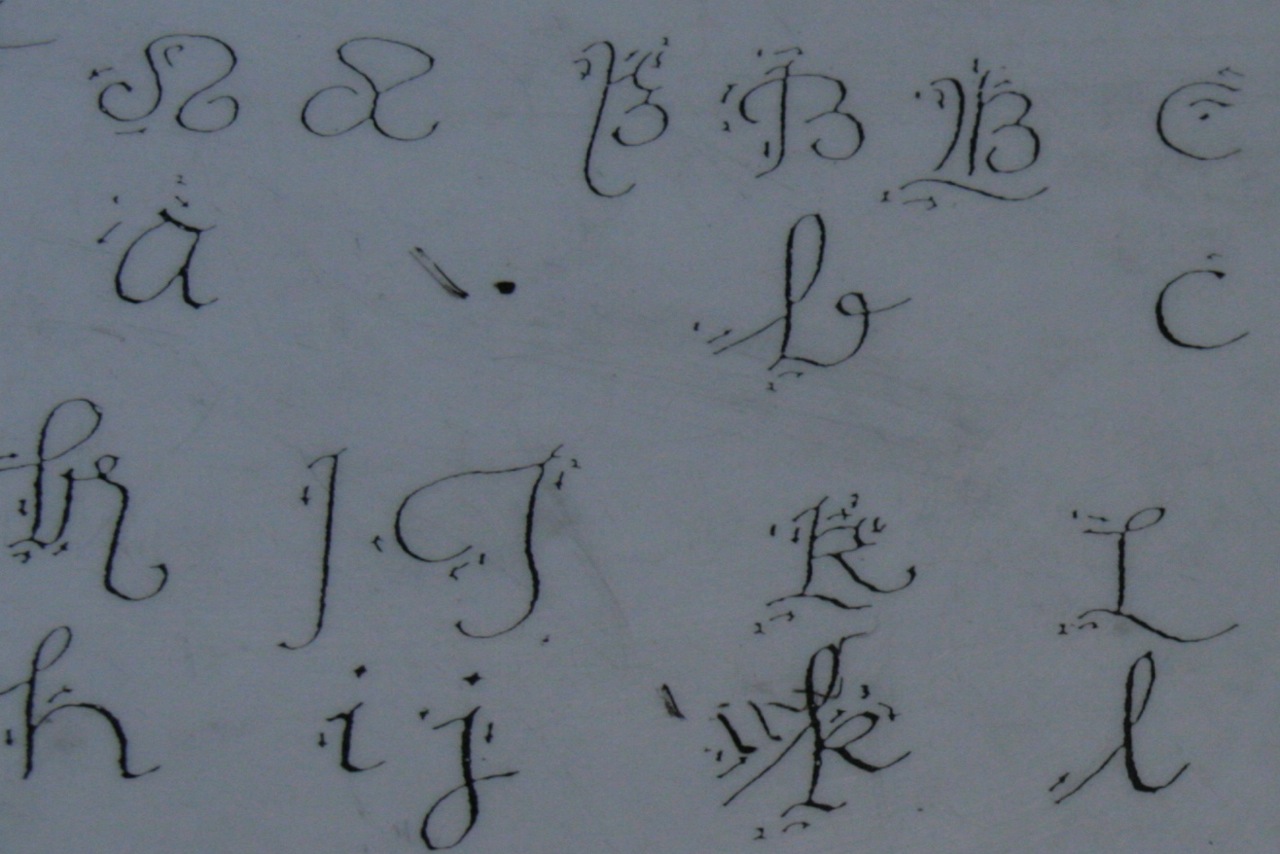 A A B B B C
a b c
H I J K L
h i j k l